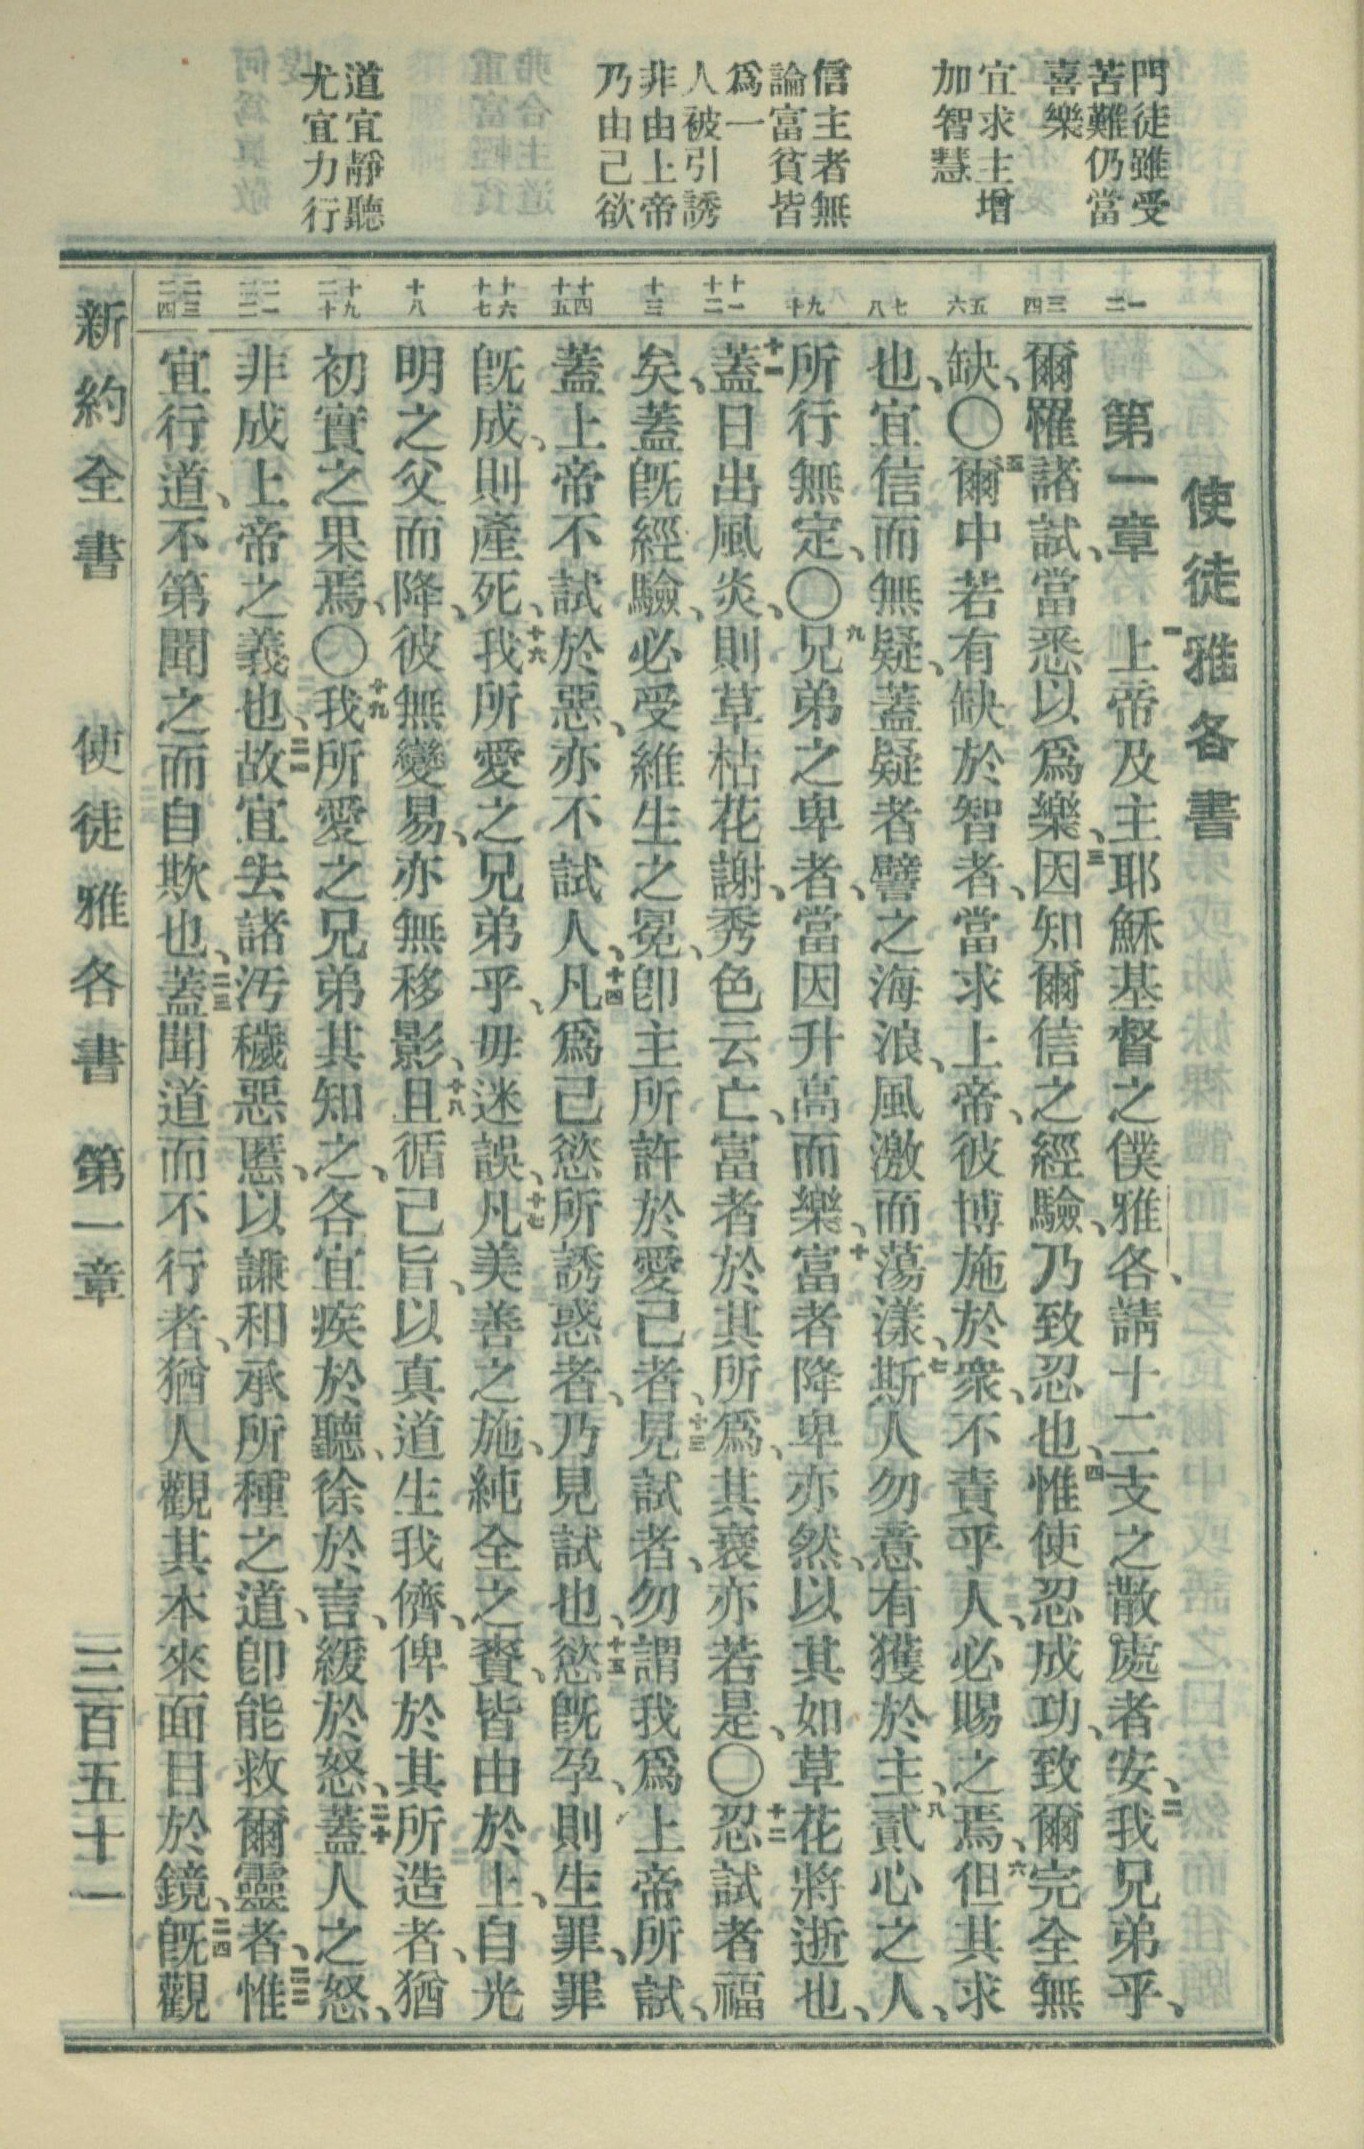 門徒雖受
苦難仍當
喜樂
宜求主增
加智慧
信主者無
論富貧皆
爲一
人被引誘
非由上帝
乃由己欲
道宜靜聽
尤宜力行
一
二
三
四
五
六
七
八
九
十
十一
十二
十三
十四
十五
十六
十七
十八
十九
二十
二一
二二
二三
二四
使徒雅各書
第一章 一上帝及主耶穌基督之僕雅各、請十二支之散處者安、二我兄弟乎、
爾罹諸試、當悉以爲樂、三因知爾信之經驗、乃致忍也、四惟使忍成功、致爾完全無
缺、〇五爾中若有缺於智者、當求上帝、彼博施於衆、不責乎人、必賜之焉、六但其求
也、宜信而無疑、蓋疑者譬之海浪、風激而蕩漾、七斯人勿意有獲於主、八貳心之人、
所行無定、〇九兄弟之卑者、當因升高而樂、十富者降卑亦然、以其如草花將逝也、
十一蓋日出風炎、則草枯花謝、秀色云亡、富者於其所爲、其衰亦若是、〇十二忍試者福
矣、蓋旣經驗、必受維生之冕、卽主所許於愛己者、十三見試者、勿謂我爲上帝所試、
蓋上帝不試於惡、亦不試人、十四凡爲己慾所誘惑者、乃見試也、十五慾旣孕、則生罪、罪
旣成、則產死、十六我所愛之兄弟乎、毋迷誤、十七凡美善之施、純全之賚、皆由於上、自光
明之父而降、彼無變易、亦無移影、十八且循己旨、以真道生我儕、俾於其所造者、猶
初實之果焉、〇十九我所愛之兄弟其知之、各宜疾於聽、徐於言、緩於怒、二十蓋人之怒、
非成上帝之義也、二一故宜去諸汚穢惡慝、以謙和承所種之道、卽能救爾靈者、二二惟
宜行道、不第聞之而自欺也、二三蓋聞道而不行者、猶人觀其本來面目於鏡、二四旣觀
新約全書 使徒雅各書 第一章 三百五十一